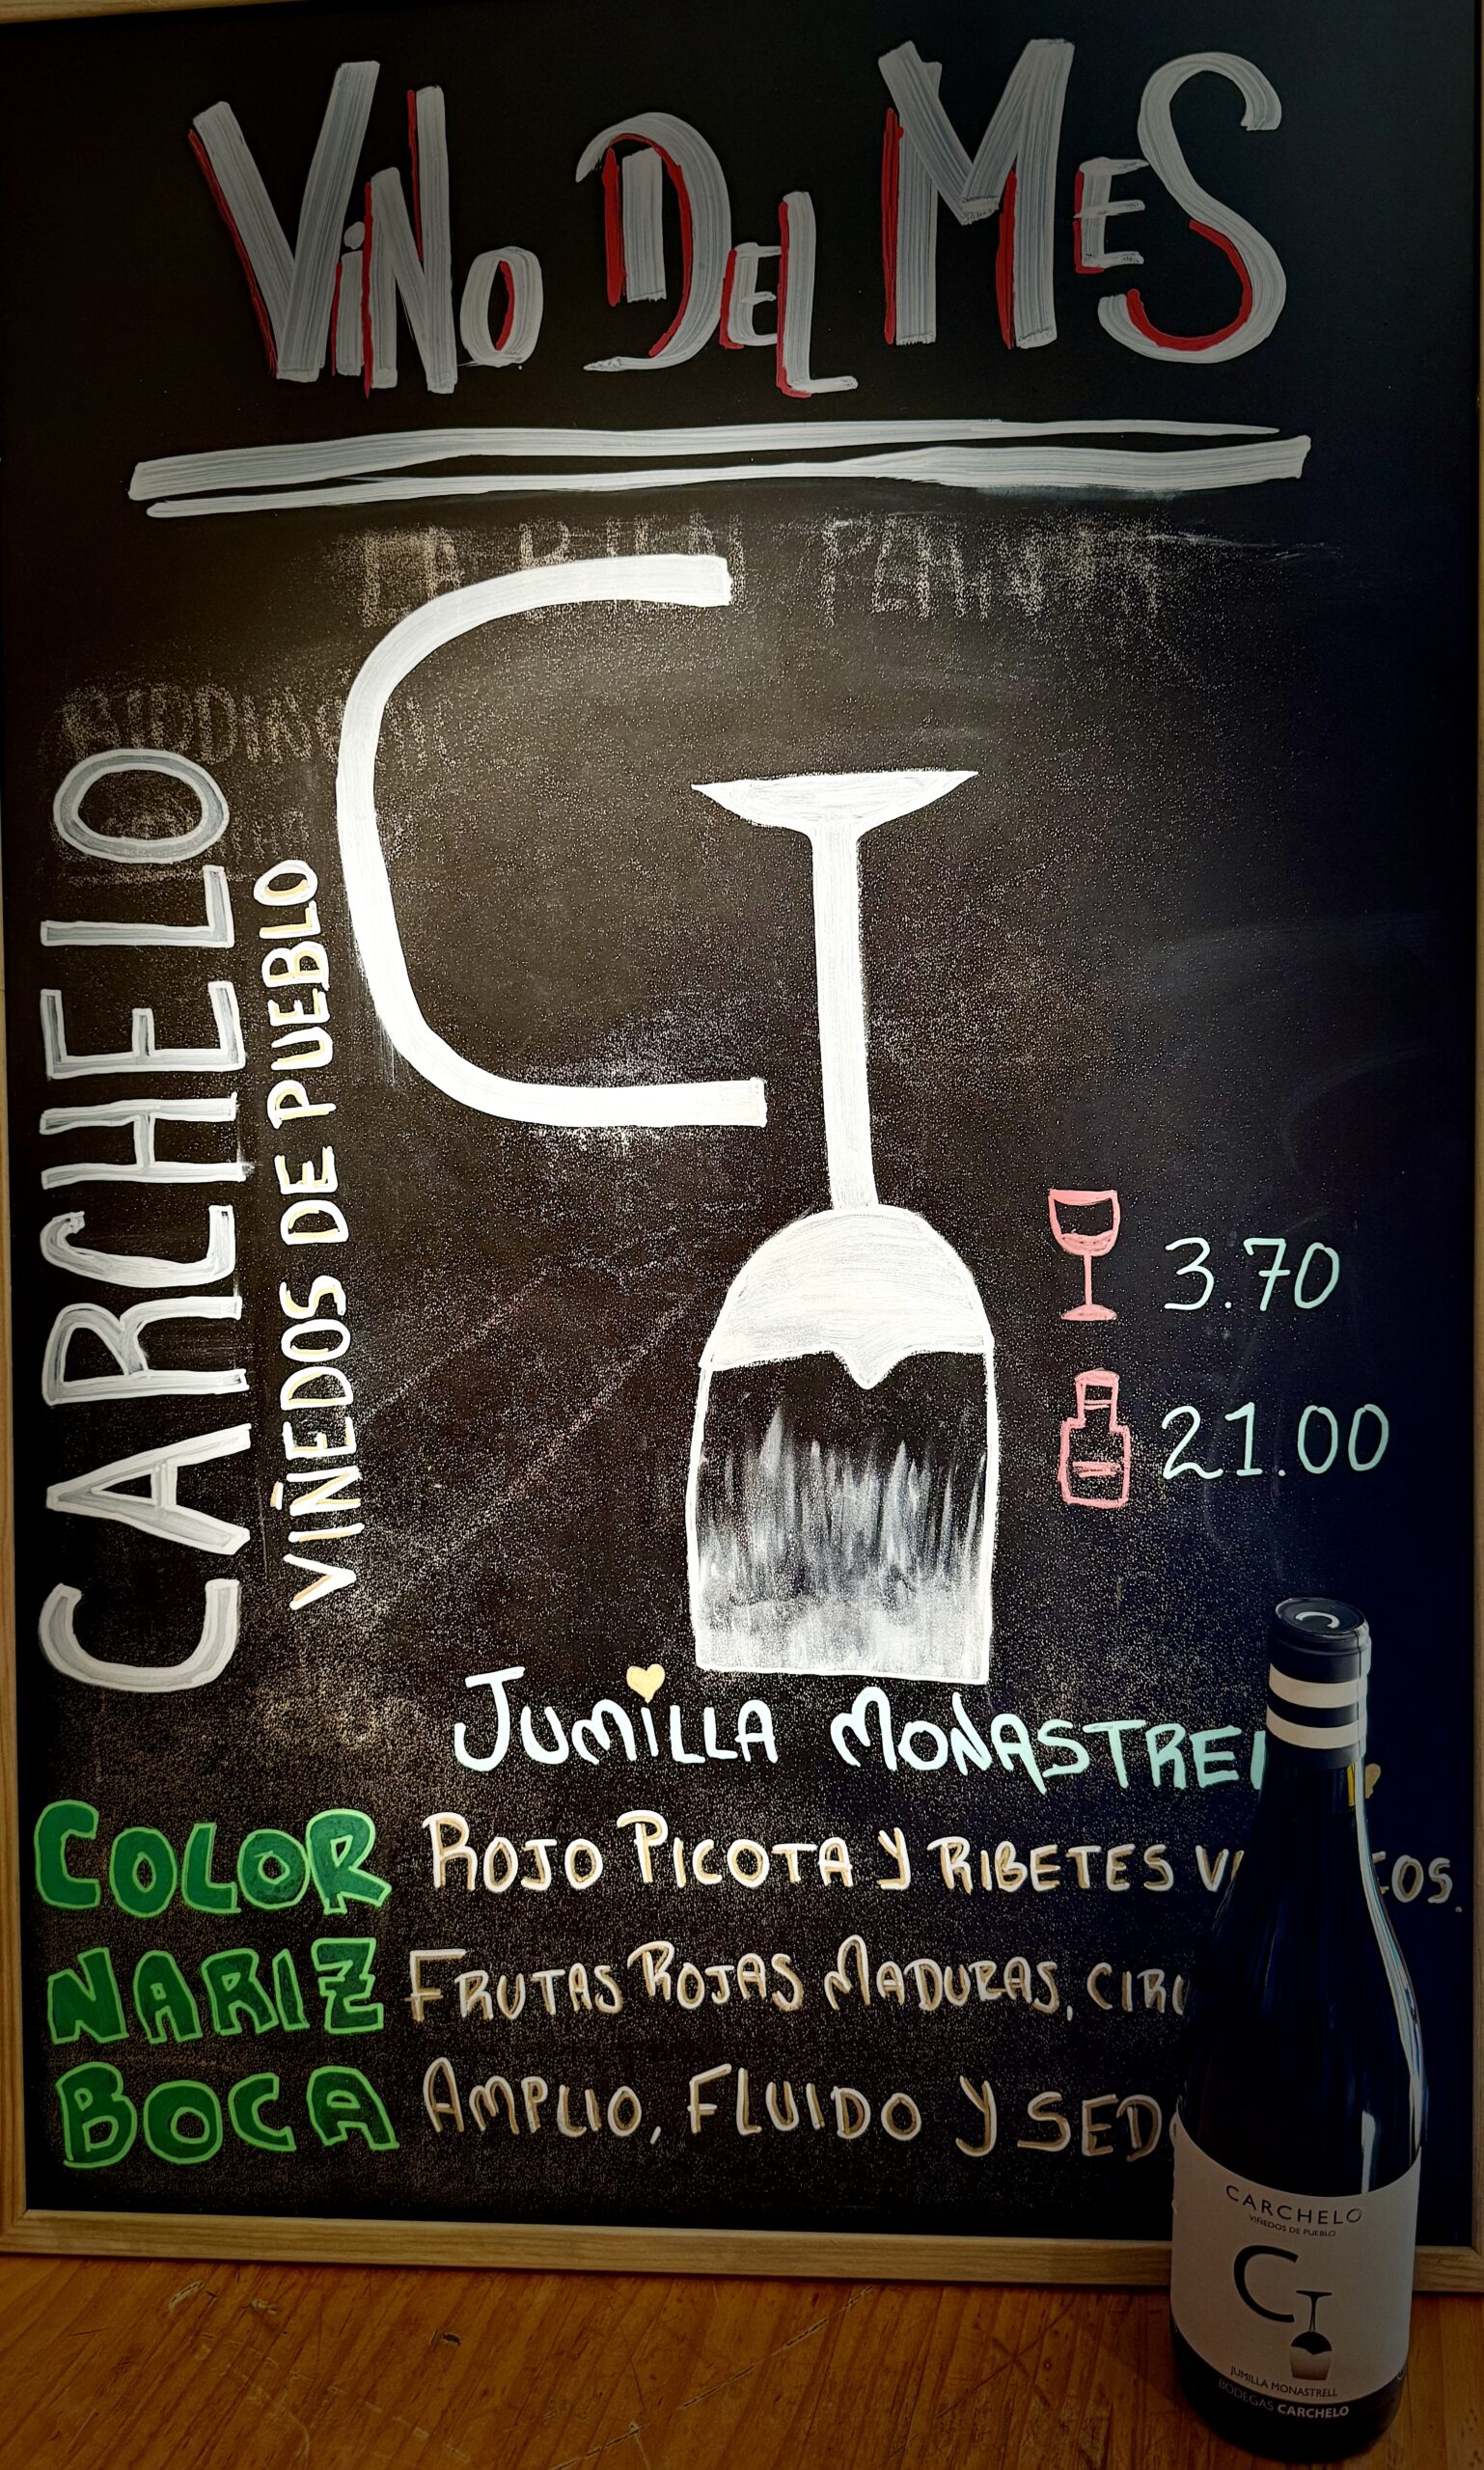 ViNo DEL MES
CARCHELO
VIÑEDOS DE PUEBLO
C
3.70
21.00
JUMILLA
COLOR ROJO PICOTA Y RIBETES
NARIZ FRUTAS ROJAS MADURAS,
BOCA AMPLIO, FLUIDO Y
CARCHELO
VIÑEDOS DE PUEBLO
C
JUMILLA MONASTRELL
BODEGAS CARCHELO